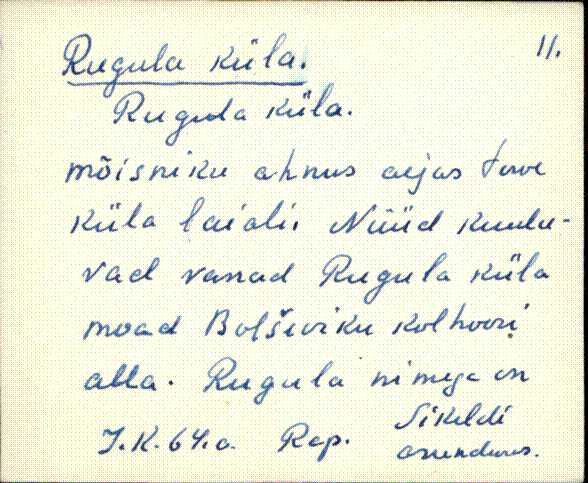 11.
Rugula küla.
Rugula küla.
mõisniku ahnus aejas terve
küla laiali. Nüüd kuulu-
vad vanad Rugula küla
maad Bolševiku kolhoosi
alla. Rugula nimega on
J.K. 64.a. Rap. Sikeldi
asundus.